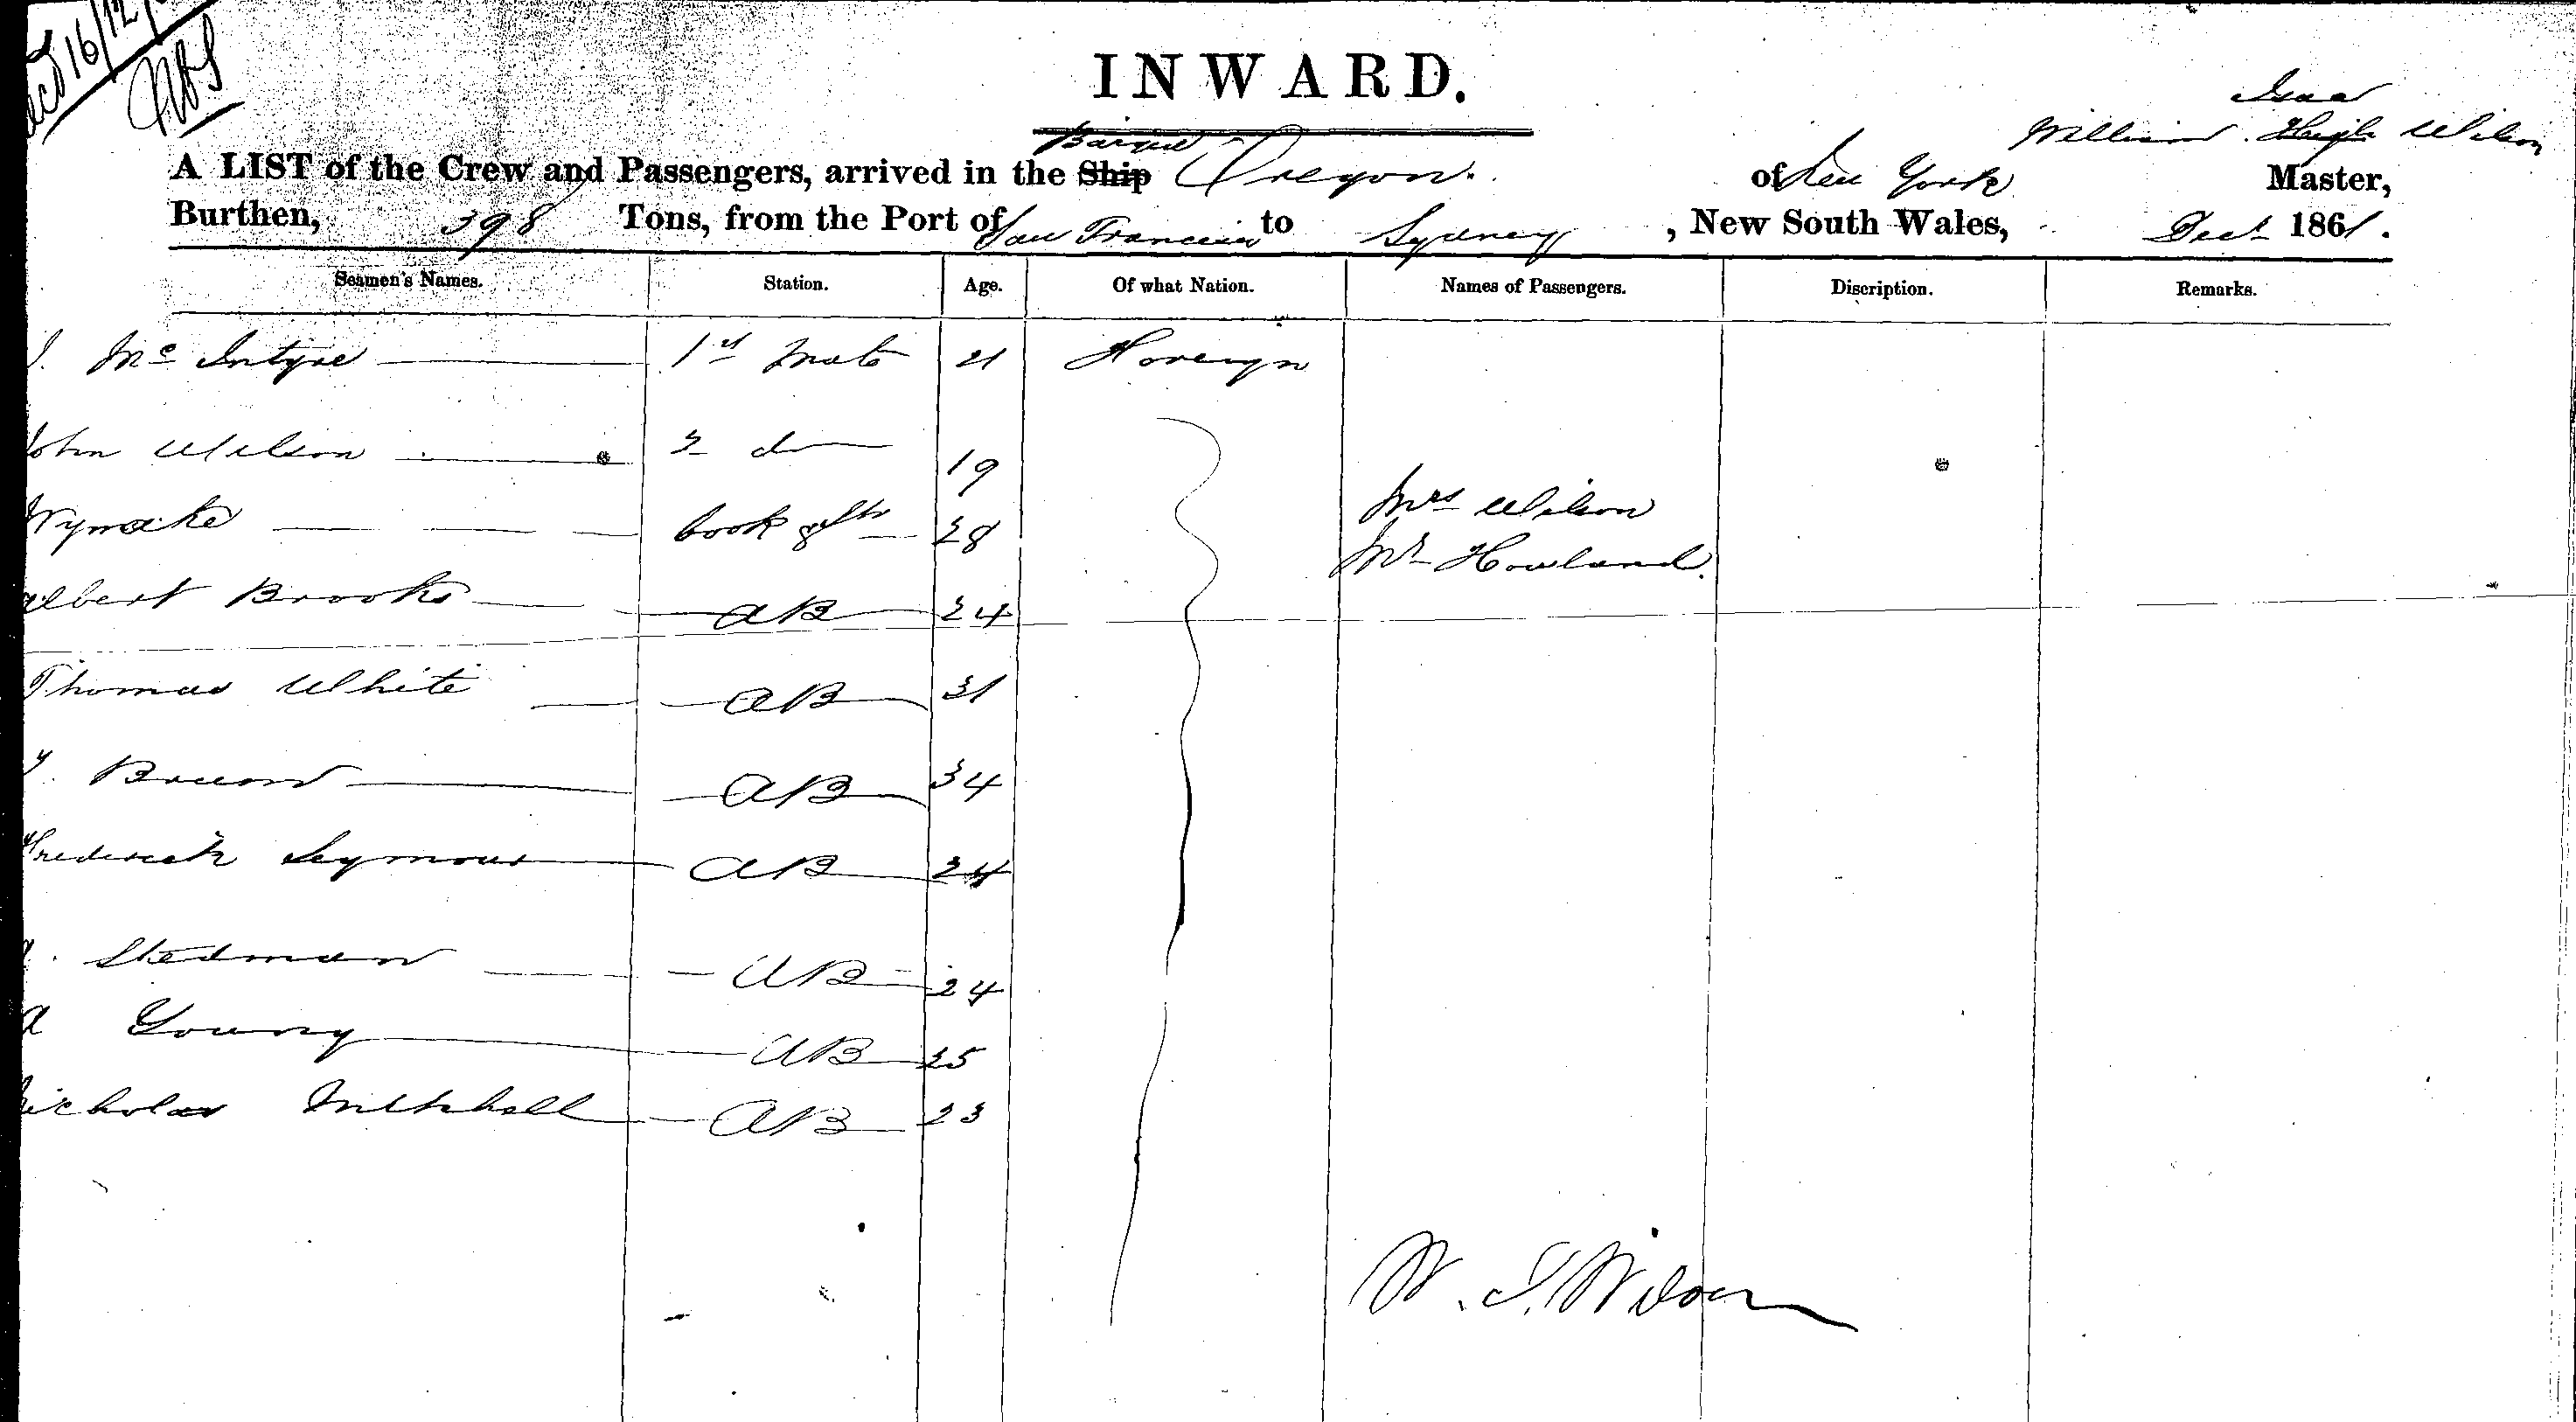 16/12
INWARD.
Isaac
William Hugh Wilson
Barque
A LIST of the Crew and Passengers, arrived in the Ship Oregon. of New York Master,
Burthen, 398 Tons, from the Port of San Francisco to Sydney, New South Wales, Dec 1861.
Seamen's Names. Station. Age. Of what Nation. Names of Passengers. Discription. Remarks.
Mc Intyre 1st Mate 21 Foreign
John Wilson 2 do 19
Mrs Wilson
28
Mr Howland.
Albert Brooks AB 24
Thomas White AB 31
Brown AB 34
Frederick Seymour AB 24
Stedman AB 24
A Young AB 25
Nicholas Mitchell AB 23
W. I. Wilson